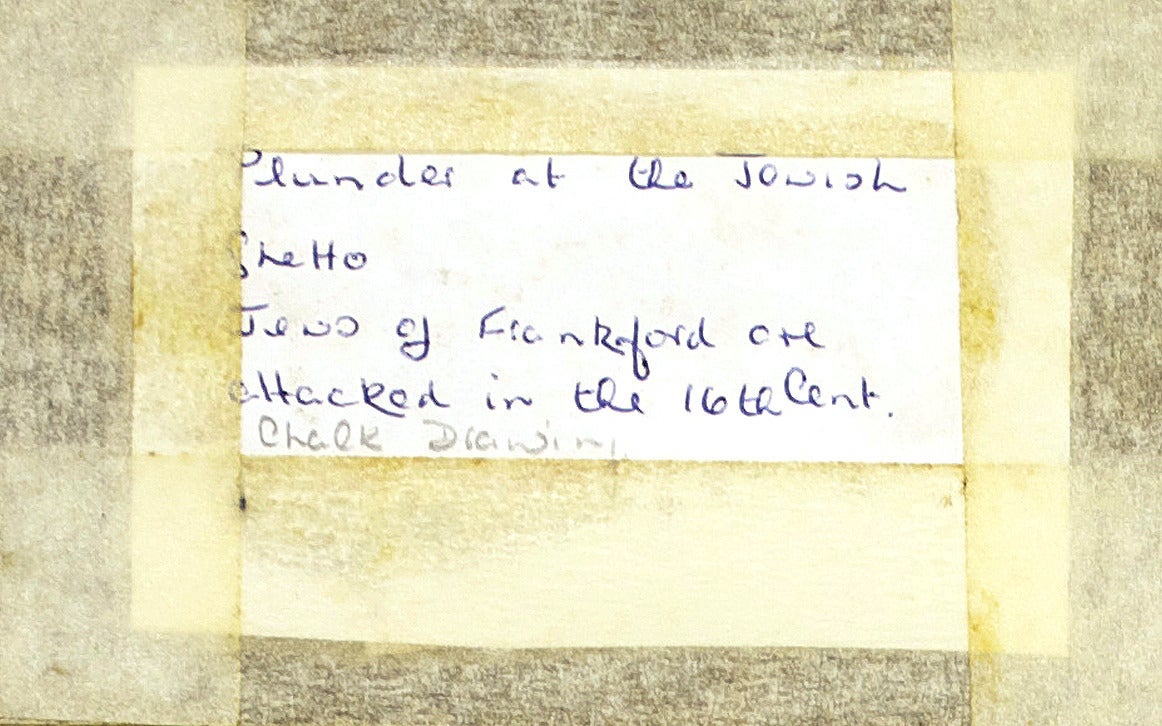 Plunder at the Jewish
Ghetto
Jews of Frankford are
attacked in the 16th Cent.
Chalk Drawing